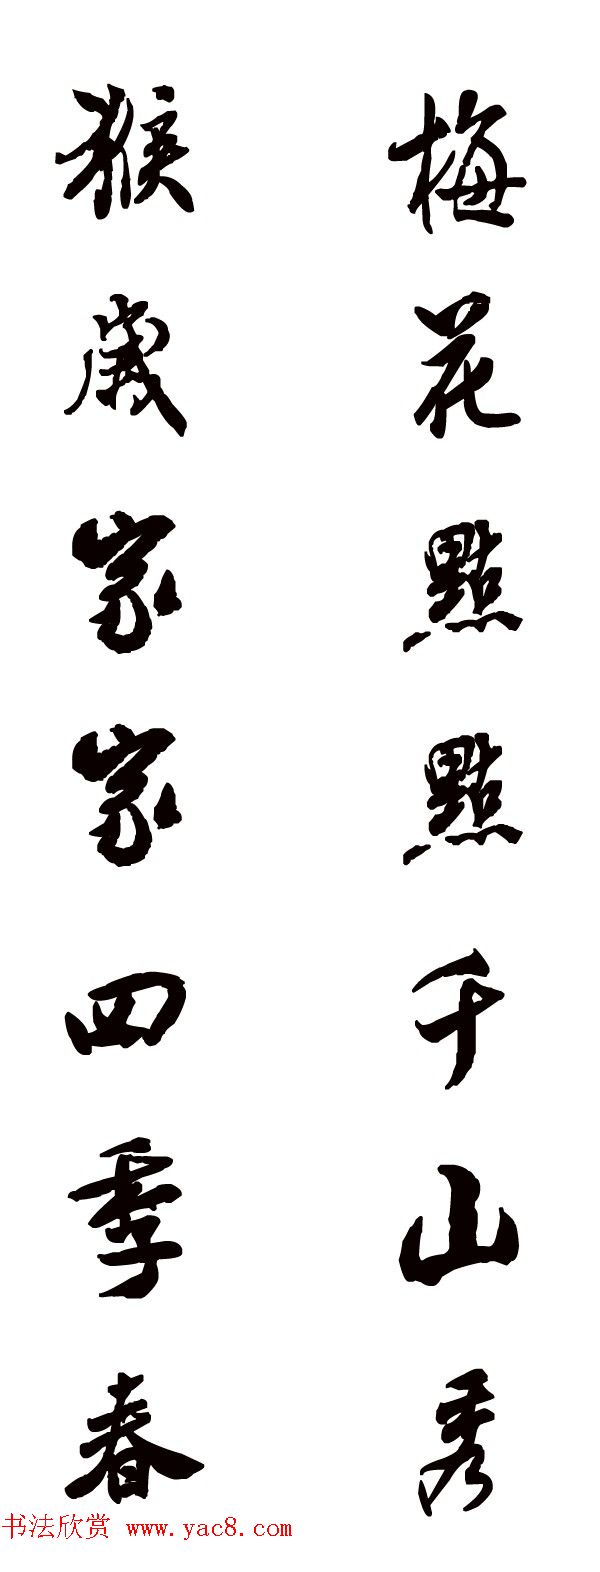 梅花點點千山秀
猴歲家家四季春
书法欣赏 www.yac8.com